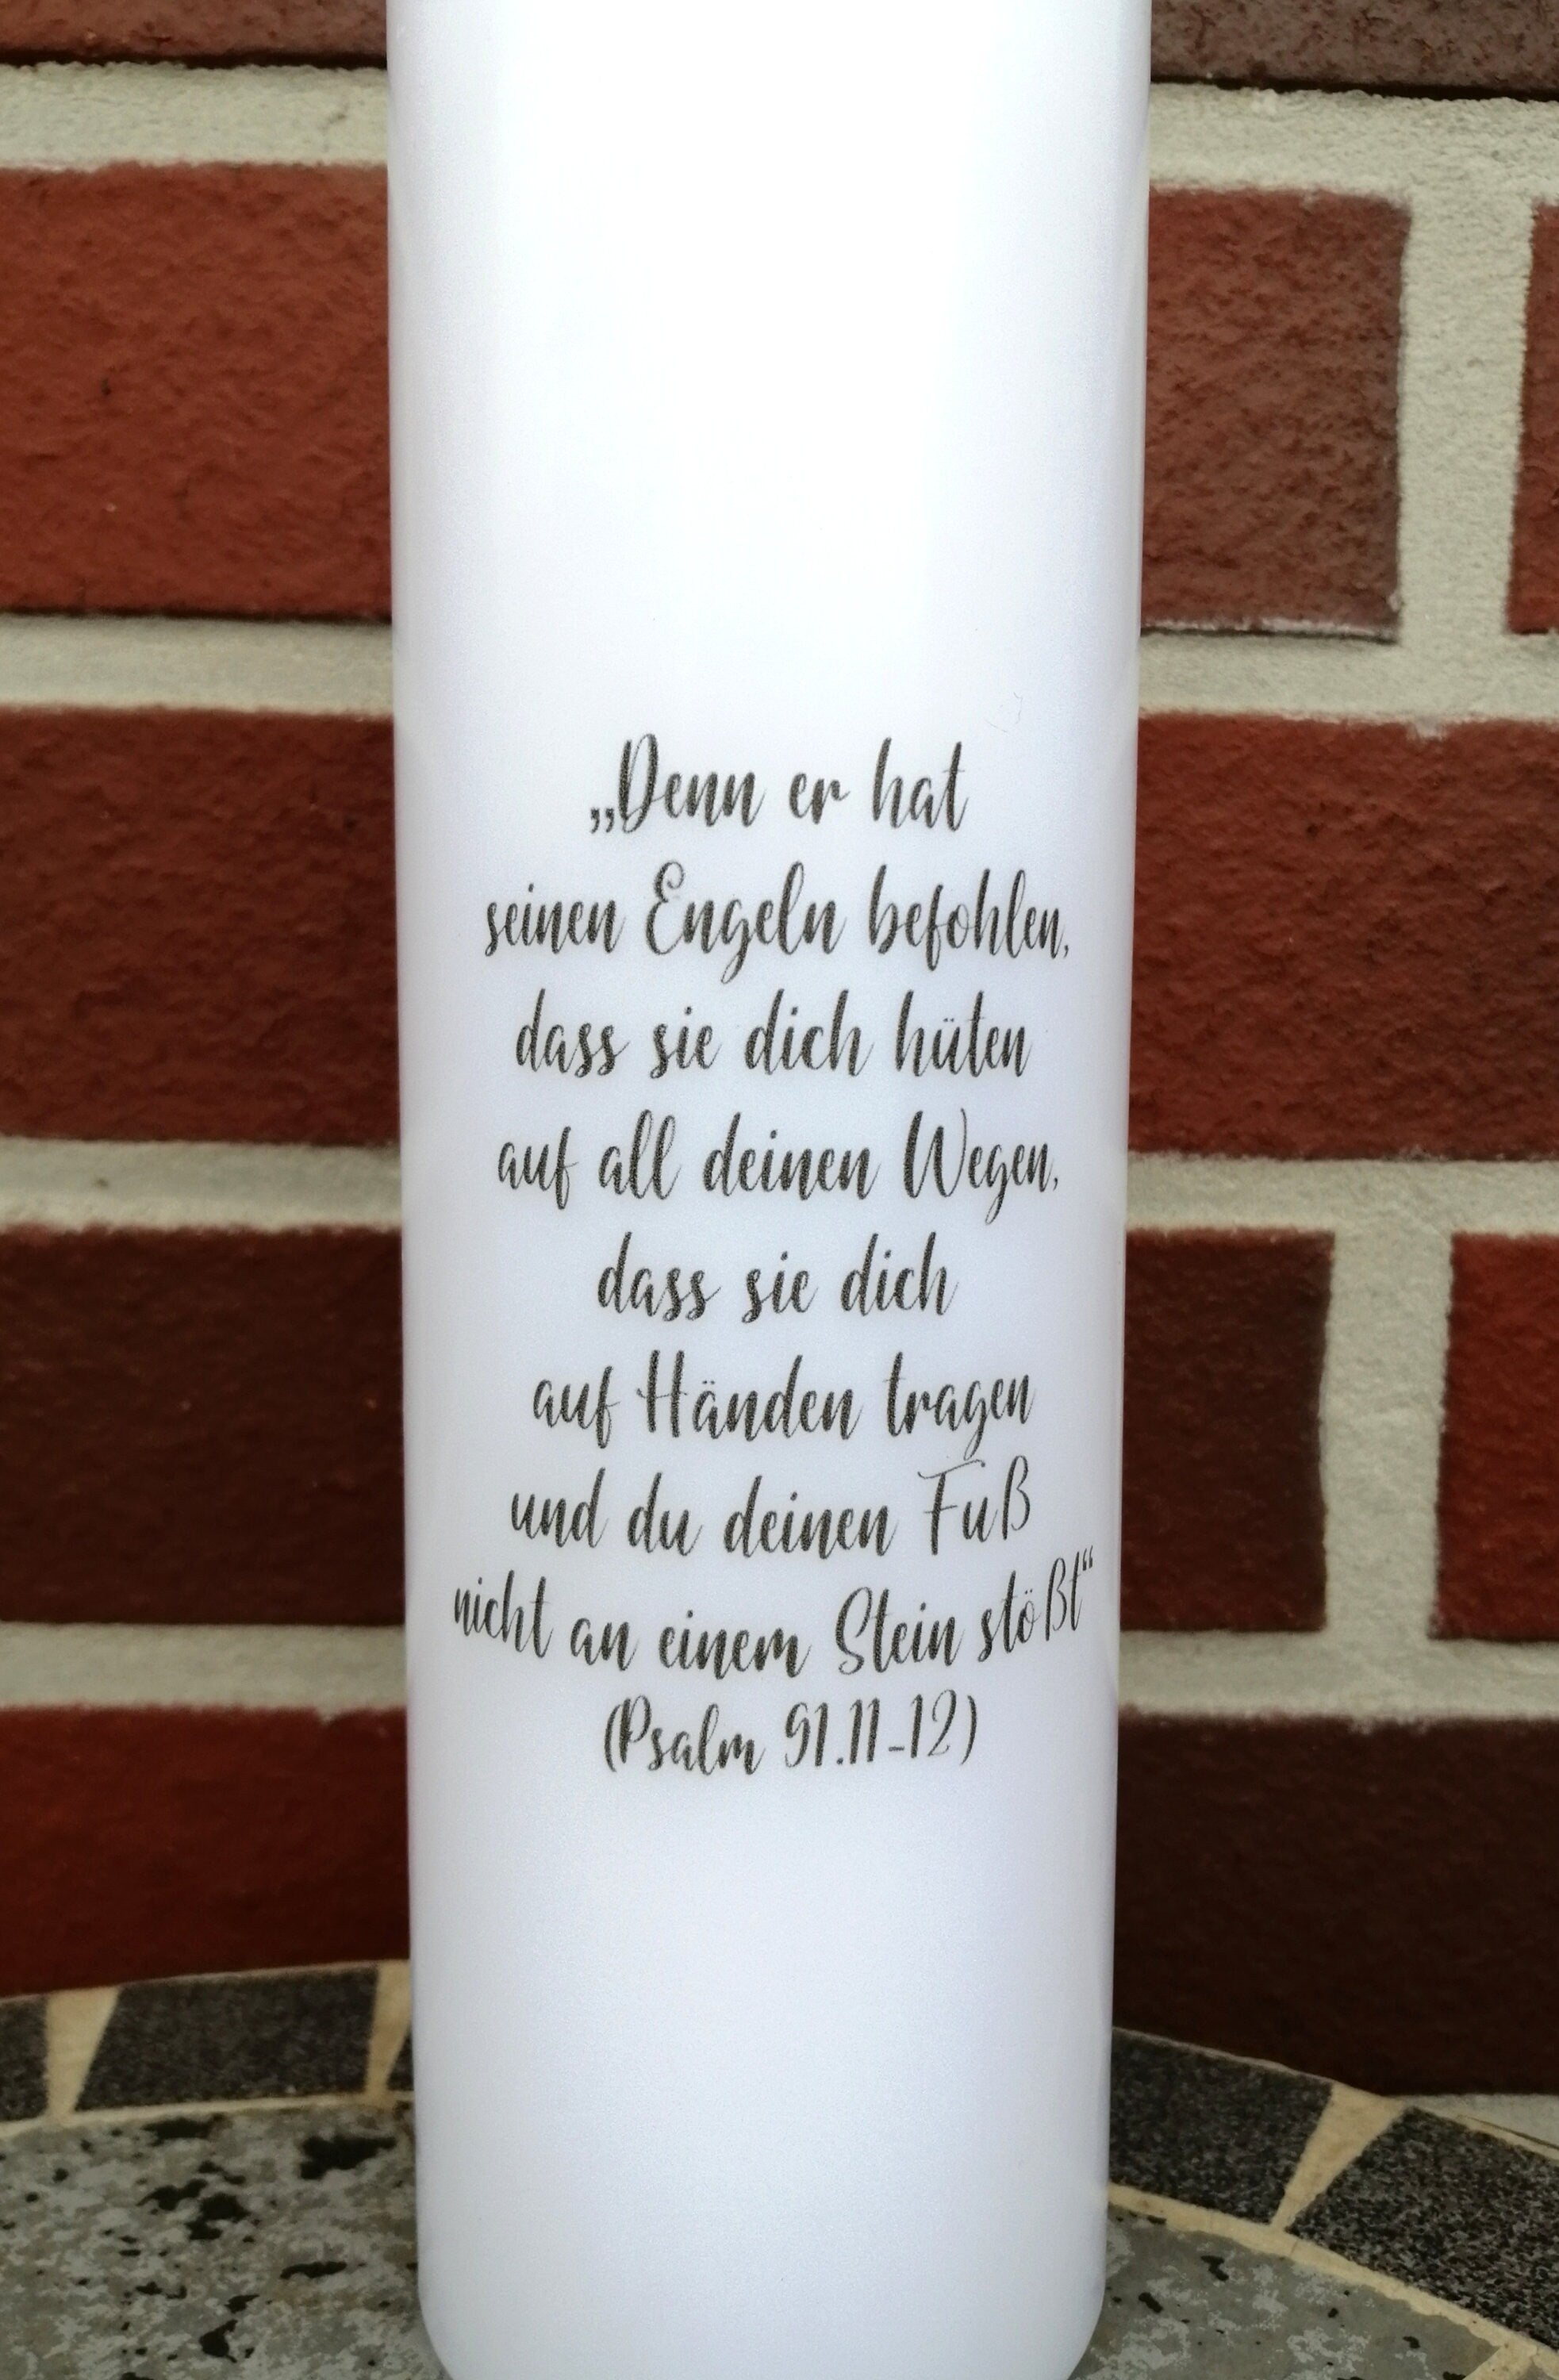 „Denn er hat
seinen Engeln befohlen,
dass sie dich hüten
auf all deinen Wegen,
dass sie dich
auf Händen tragen
und du deinen Fuß
nicht an einem Stein stößt“
(Psalm 91.11-12)